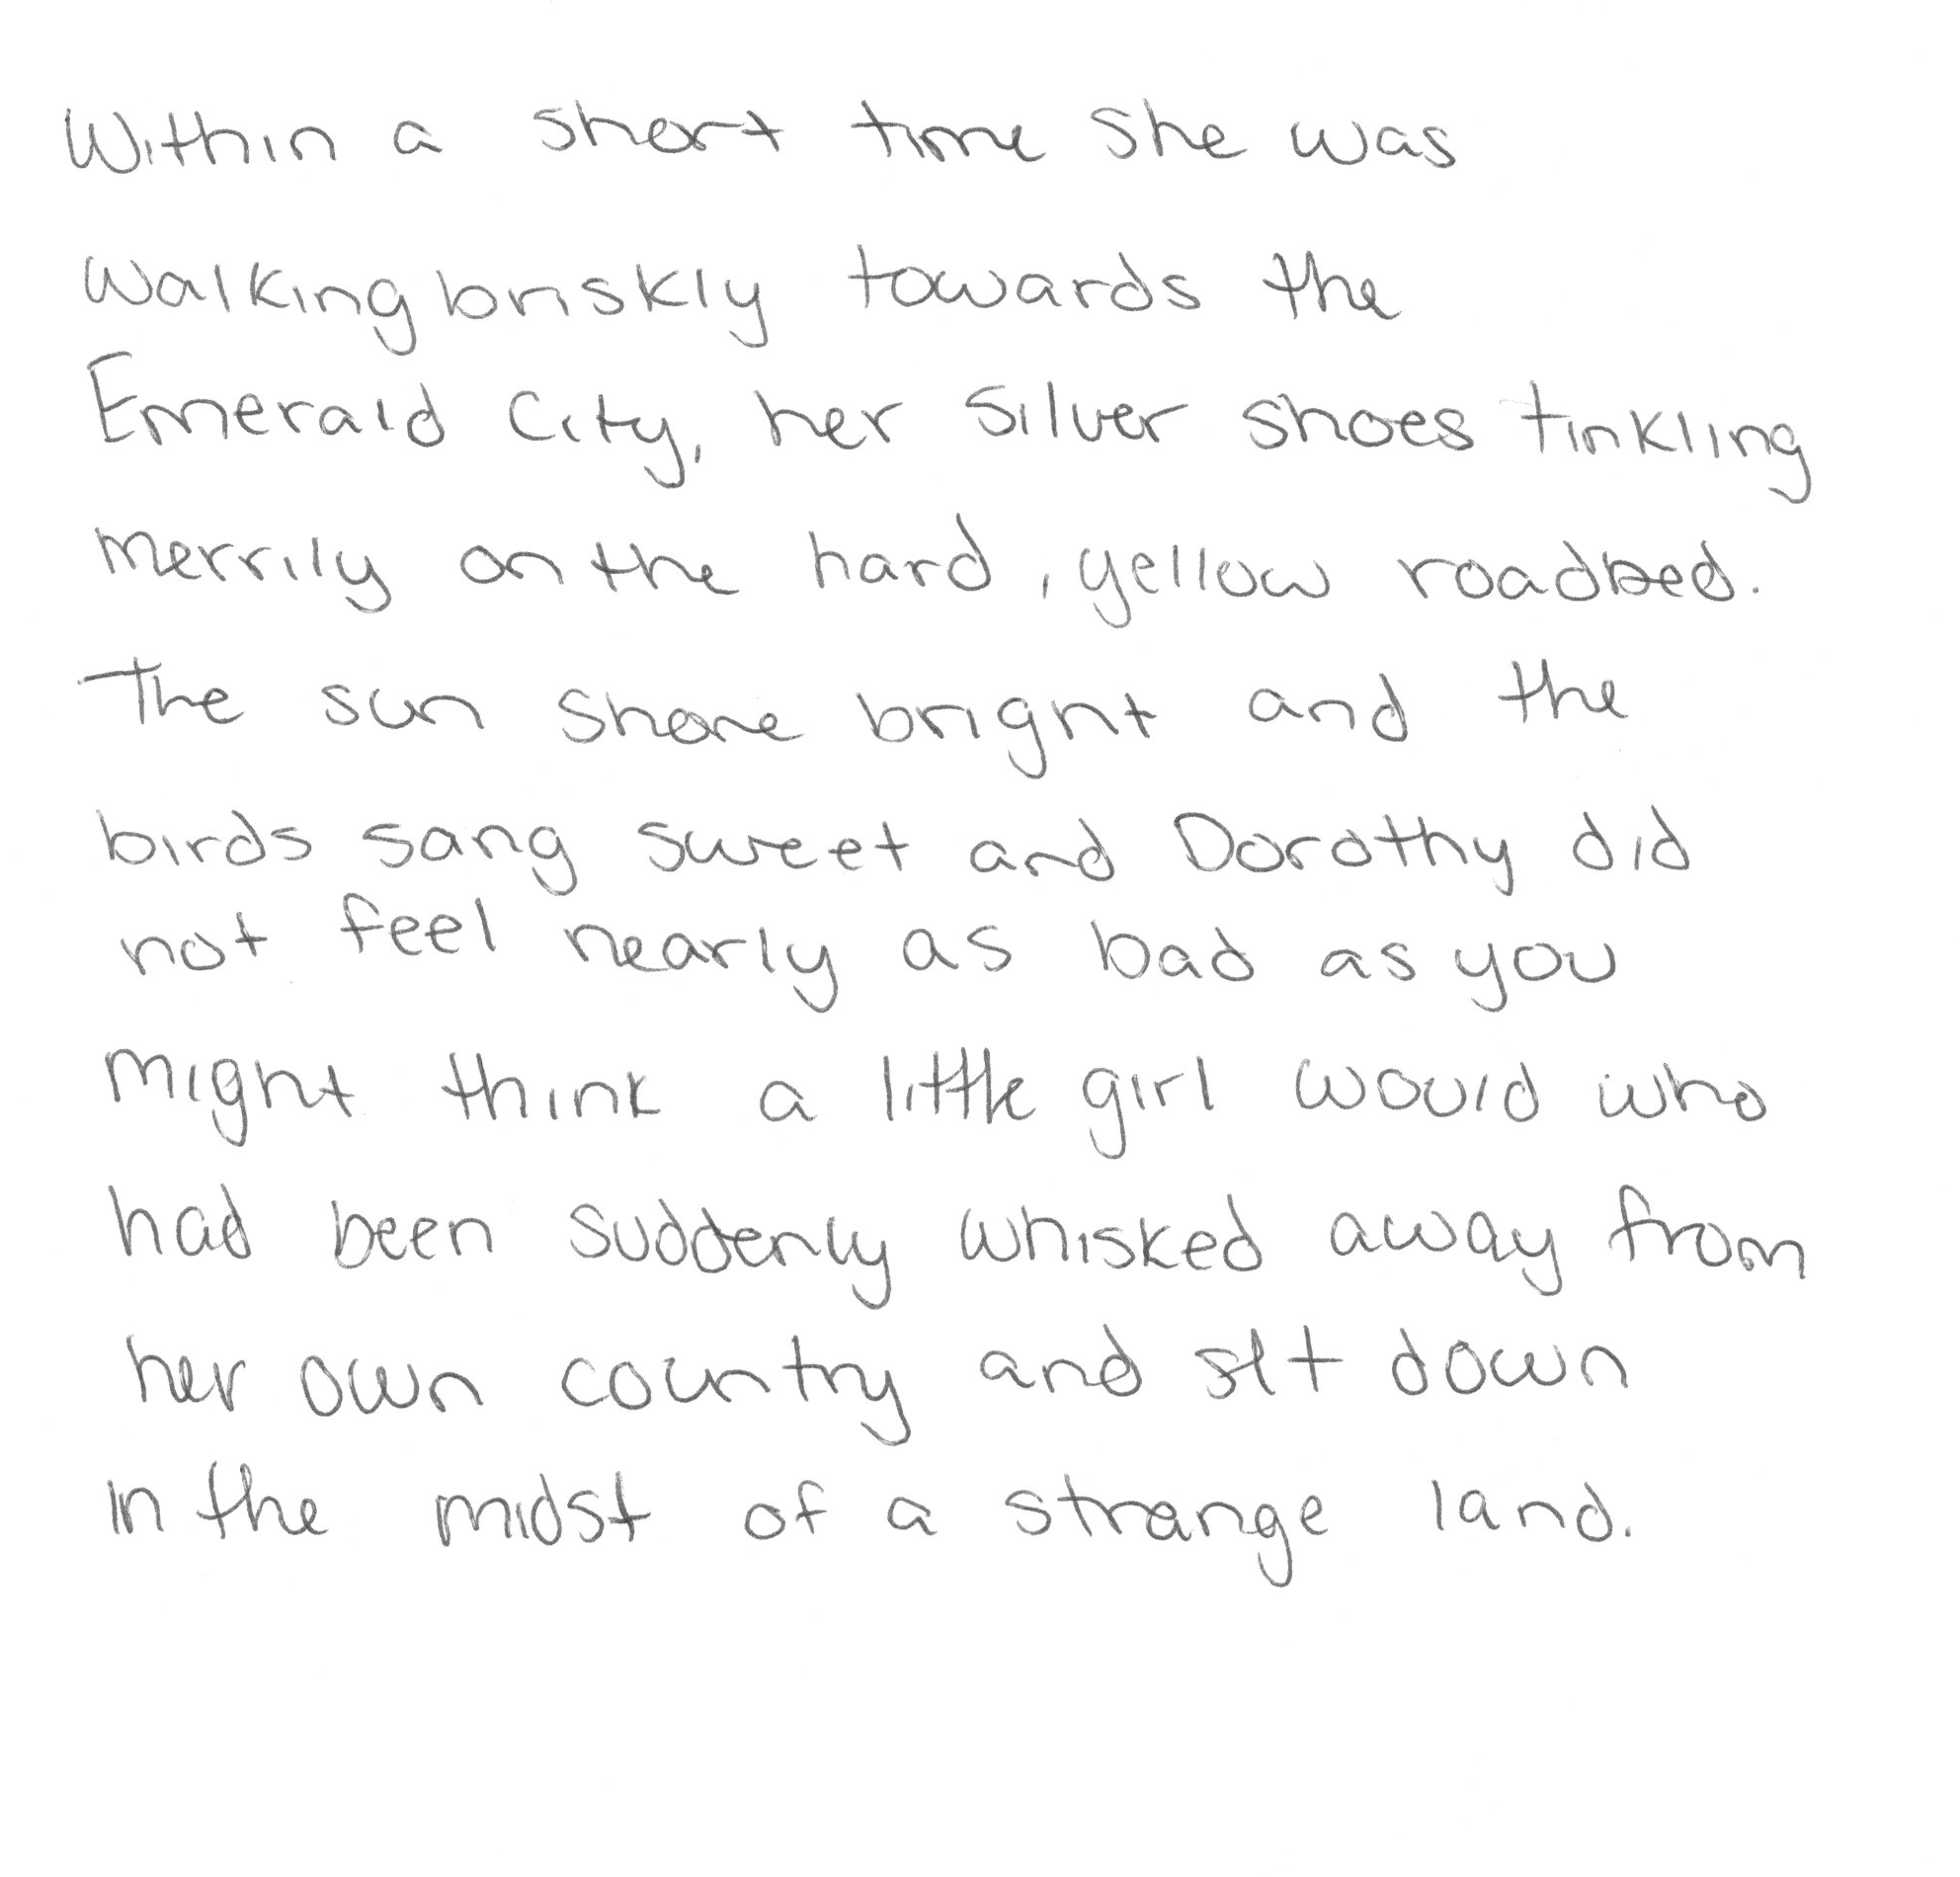 Within a short time she was
walking briskly towards the
Emerald City, her silver shoes tinkling
merrily on the hard, yellow roadbed.
The sun shone bright and the
birds sang sweet and Dorothy did
not feel nearly as bad as you
might think a little girl would who
had been suddenly whisked away from
her own country and set down
in the midst of a strange land.